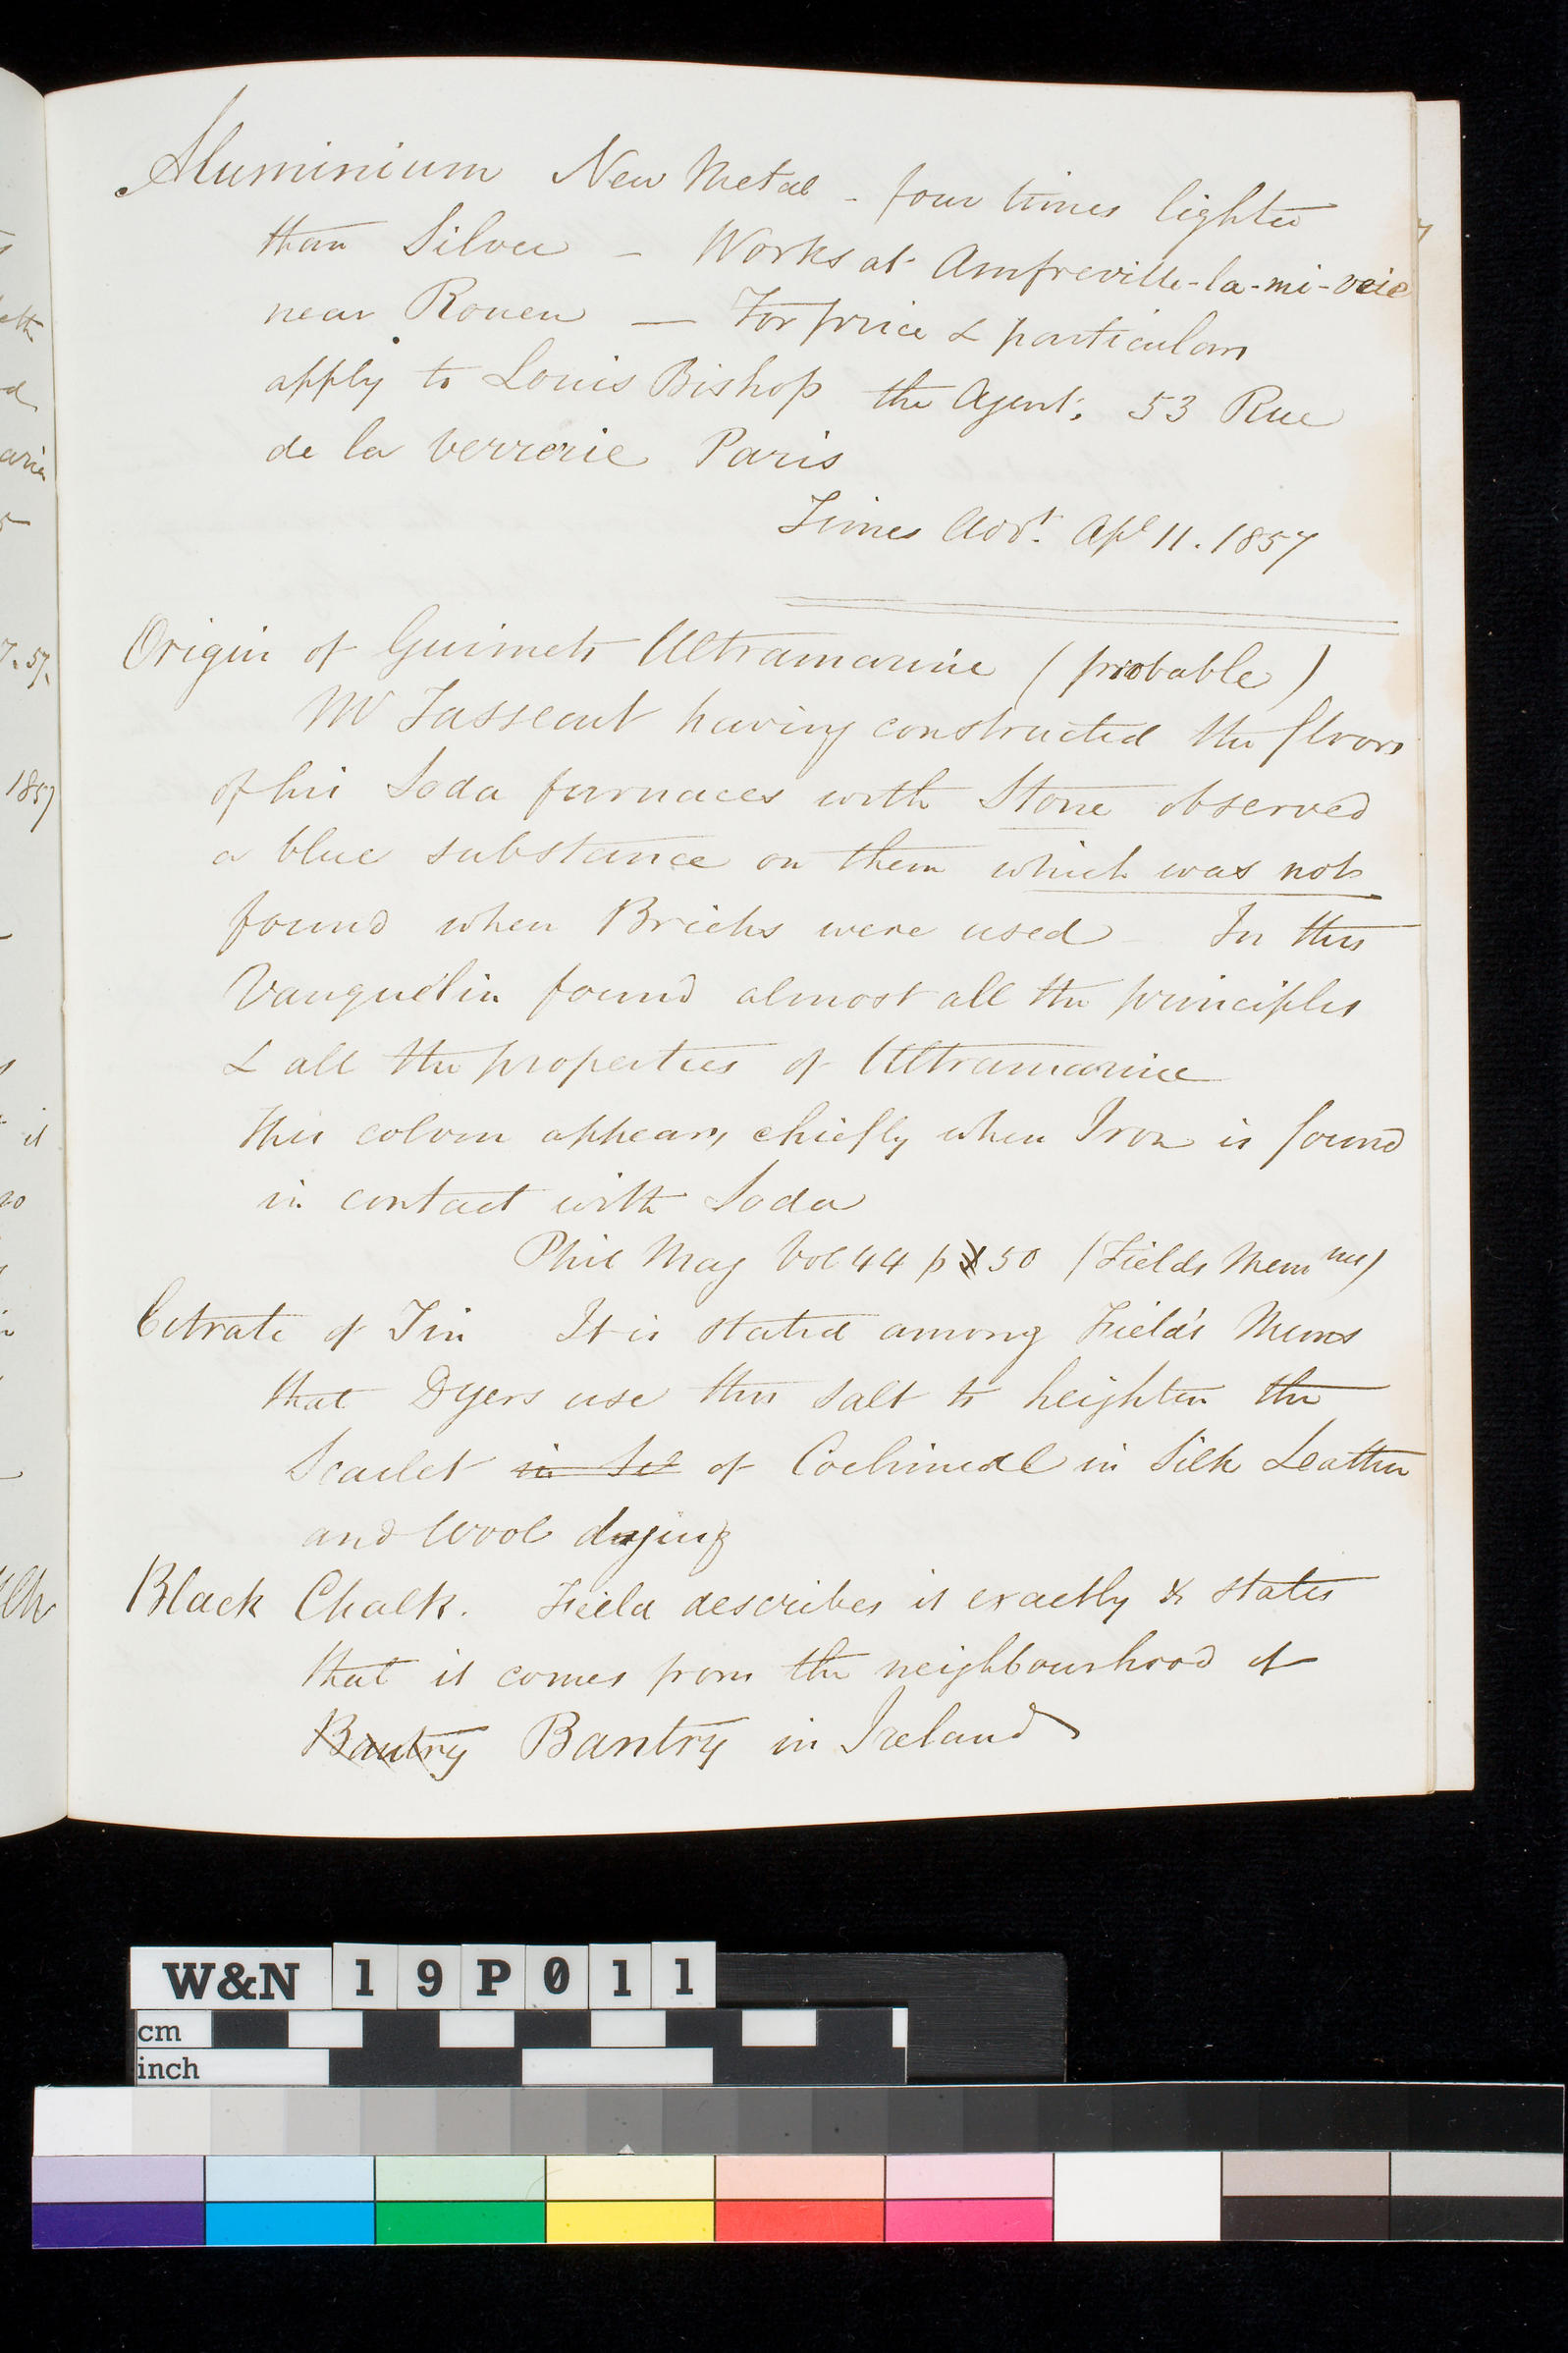 Aluminium New Metal - four times lighter
than Silver - Works at Amfreville-la-mi-voie
near Rouen — For price & particulars
apply to Louis Bishop the Agent, 53 Rue
de la Verrerie Paris
Times Advt. Apl 11. 1857
Origin of Guimets Ultramarine (probable)
Mr Tasseart having constructed the floors
of his Soda furnaces with Stone observed
a blue substance on them which was not
found when Bricks were used In this
Vauquelin found almost all the principles
& all the properties of Ultramarine
this colour appears chiefly when Iron is found
in contact with Soda
Phil Mag Vol 44 p 50 (Fields Mem
Citrate of Tin It is stated among Field's Mems
that Dyers use this salt to heighten the
Scarlet in Sil of Cochineal in Silk Leather
and Wool dying
Black Chalk. Field describes it exactly & states
that it comes from the neighbourhood of
Bantry Bantry in Ireland
7.57.
1857
it
W&N 19P011
cm
inch